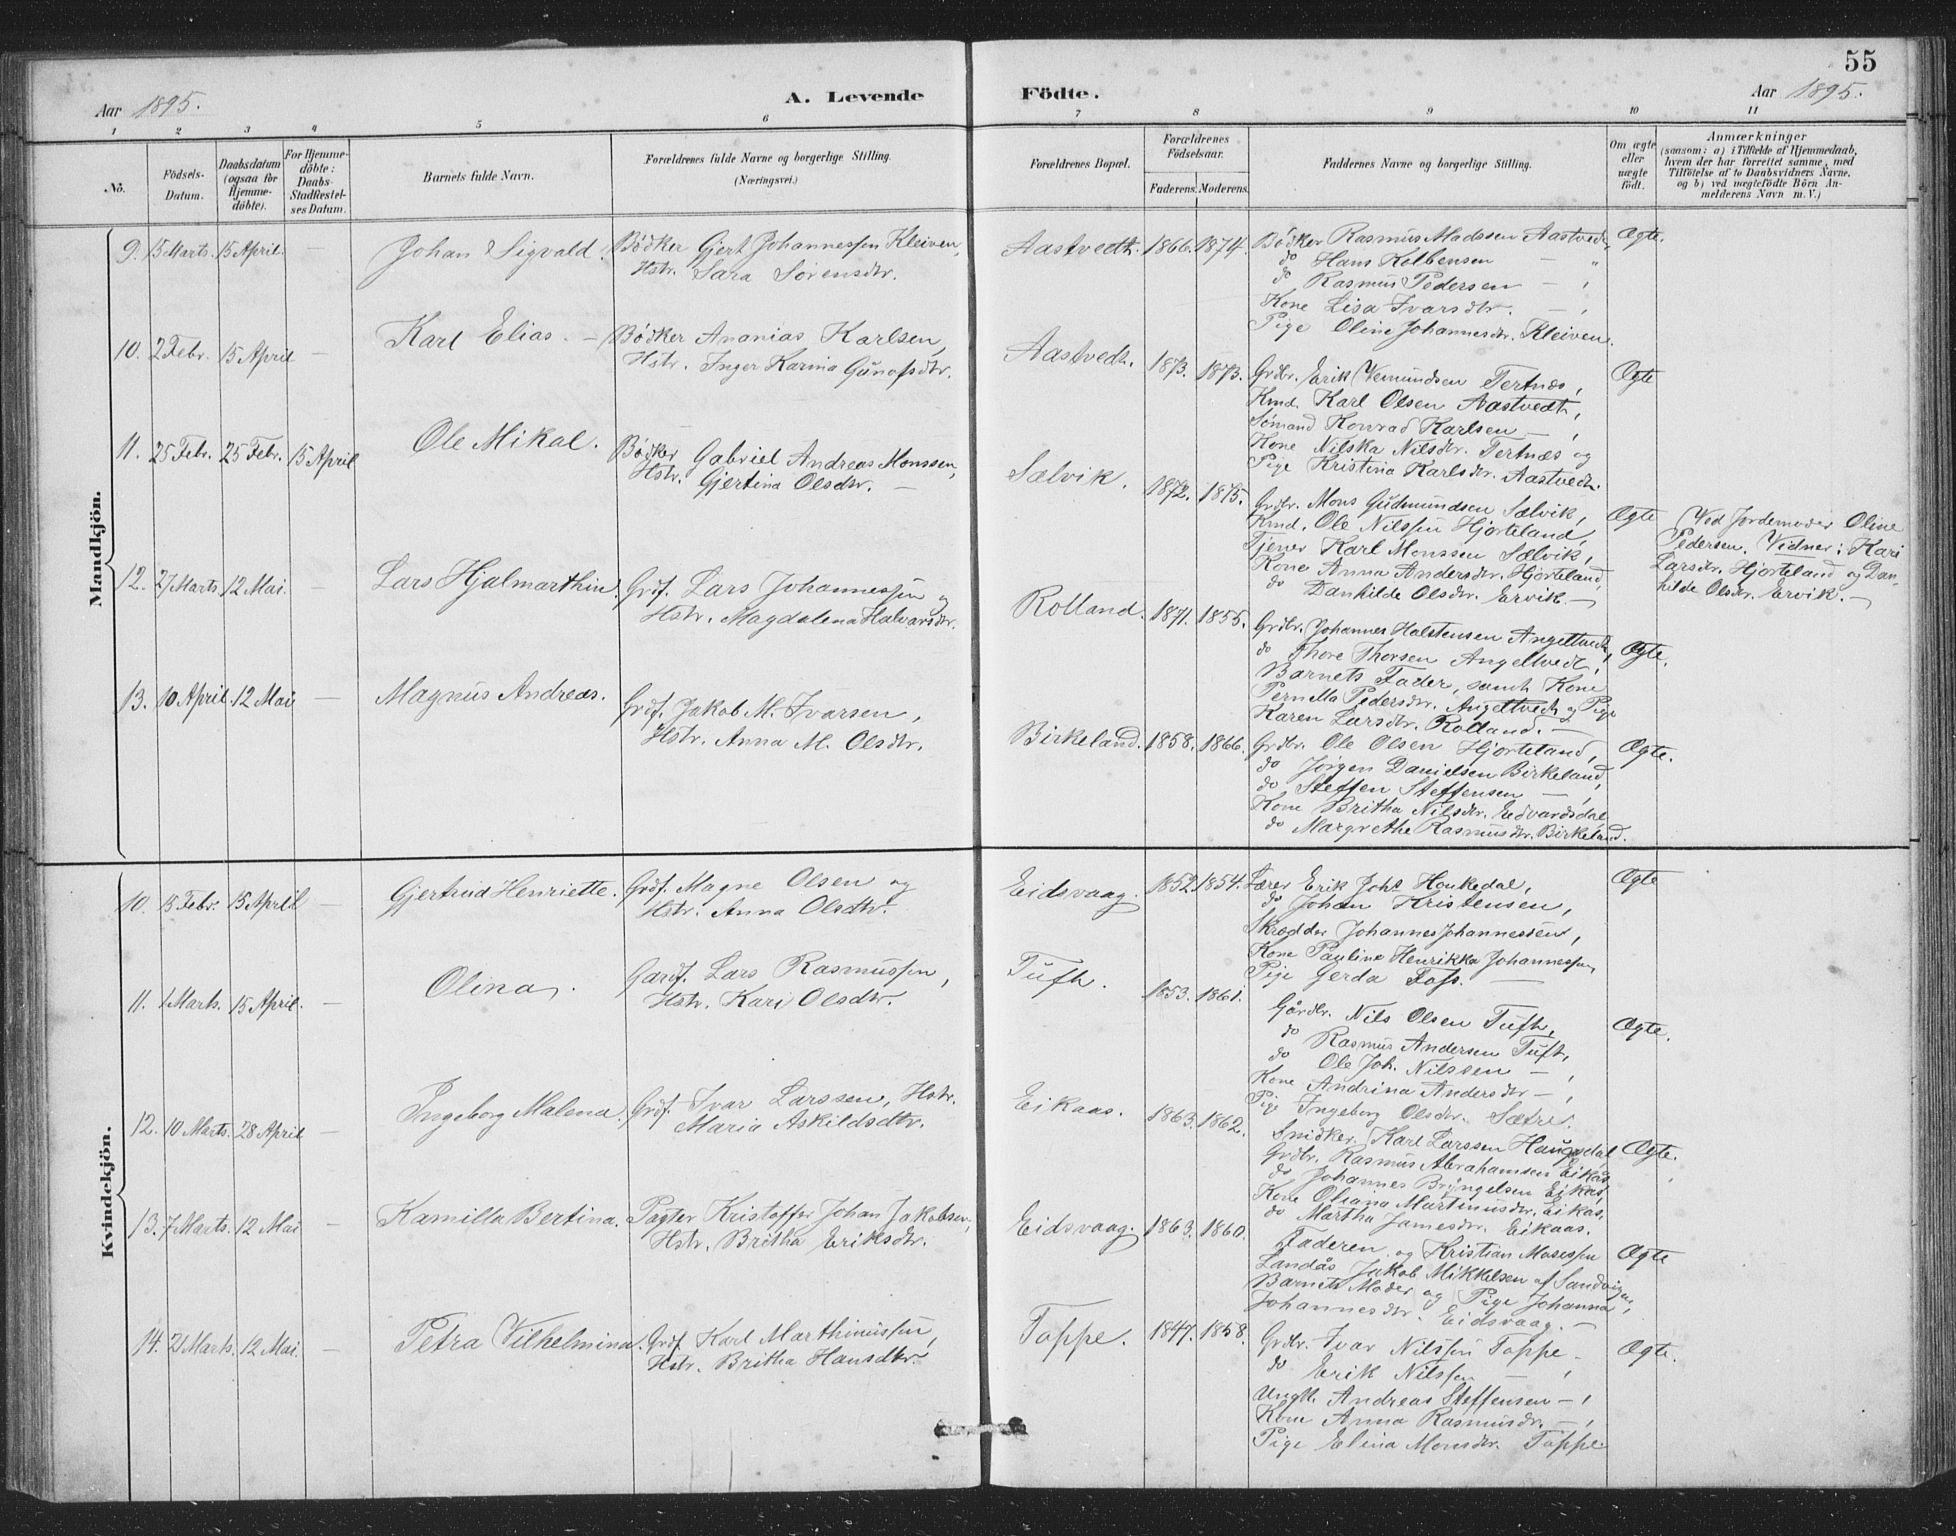 55
Aar 1895. A. Levende Födte. Aar 1895.
1 2 3 4 5 6 7 8 9 10 11
No.
Födsels-Datum.
Daabsdatum (ogsaa for Hjemme-döbte).
For Hjemme-döbte: Daabs-Stadfæstel-ses Datum.
Barnets fulde Navn.
Forældrenes fulde Navne og borgerlige Stilling.
(Næringsvei.)
Forældrenes Bopæl.
Forældrenes Födselsaar.
Faderens. Moderens.
Faddernes Navne og borgerlige Stilling.
Om ægte eller uægte födt.
Anmærkninger
(saasom: a) i Tilfælde af Hjemmedaab,
hvem der har forrettet samme, med
Tilföielse af to Daabsvidners Navne,
og b) ved uægtefödte Börn An-
melderens Navn m. V.)
Mandkjön.
9. 15 Marts. 15 April. — Johan Sigvald. Bödker Gjert Johannessen Kleiven,
Hstr. Sara Sørensdtr.
Aastvedt. 1866. 1874. Bödker Rasmus Madssen Aastvedt, Ægte.
do Hans Kolbensen — "
do Rasmus Pedersen — ,
Kone Lisa Ivarsdtr. — ,
Pige Oline Johannesdtr. Kleiven.
10. 2 Febr. 15 April — Karl Elias. — Bödker Ananias Karlsen,
Hstr. Inger Karina
Aastvedt. 1873. 1873. Grdbr. Erik Vemundsen Tertnæs, Ægte
Kmd. Karl Olsen Aastvedt,
Sømand Konrad Karlsen — ,
Kone Nilska Nilsdtr. Tertnæs og
Pige Kristina Karlsdtr. Aastvedt.
11. 25 Febr. 25 Febr. 15 April Ole Mikal. Bödker Gabriel Andreas Monssen,
Hstr. Gjertina Olsdtr. —
Sælvik. 1872. 1875. Grdbr. Mons Gudmundsen Sælvik, Ægte
Kmd. Ole Nilssen Hjorteland,
Tjener Karl Monssen Sælvik,
Kone Anna Andersdtr. Hjorteland,
do Dankilde Olsdtr. Ervik. —
Ved Jordemoder Oline
Pedersen. Vidner: Kari
Larsdtr. Hjorteland og Dan-
kilde Olsdtr. Ervik. —
12. 27 Marts 12 Mai. — Lars Hjalmarthin. Grdf. Lars Johannessen og
Hstr. Magdalena Halvarsdtr.
Rolland. 1871. 1855. Grdbr. Johannes Halstensen Angeltvedt, Ægte.
do Thore Thorsen Angeltvedt,
Barnets Fader, samt Kone
Pernella Pedersdtr. Angeltvedt og Pige
Karen Larsdtr. Rolland. —
13. 10 April. 12 Mai — Magnus Andreas. Grdf. Jakob M. Ivarsen,
Hstr. Anna M. Olsdtr.
Birkeland. 1858. 1866. Grdbr. Ole Olsen Hjorteland, Ægte.
do Jørgen Danielsen Birkeland,
do Steffen Steffensen — ,
Kone Britha Nilsdtr. Edvardsdal,
do Margrethe Rasmusdtr. Birkeland.
Kvindekjön.
10. 15 Febr. 15 April — Gjertrud Henriette. Grdf. Magne Olsen og
Hstr. Anna Olsdtr.
Eidsvaag. 1852. 1854. Lærer Erik Johs Haukedal, Ægte
do Johan Kristensen,
Skrædder Johannes Johannessen,
Kone Paulina Henrikka Johannessen,
Pige Gerda Foss. —
11. 1 Marts. 15 April. — Olina. Gardf. Lars Rasmussen,
Hstr. Kari Olsdtr.
Tuft. 1853. 1861. Gårdbr. Nils Olsen Tuft, Ægte.
do Rasmus Andersen Tuft,
do Ole Joh. Nilssen — ,
Kone Andrina Andersdtr — ,
Pige Ingeborg Olsdtr. Sætre.
12. 10 Marts. 28 April — Ingeborg Malena. Grdf. Ivar Larssen, Hstr.
Maria Askildsdtr.
Eikaas. 1863. 1862. Snidker Karl Larssen Ægte.
Grdbr. Rasmus Abrahamsen Eikås,
do Johannes Bryngelsen Eikås,
Kone Oliana Martinusdtr. Eikås,
do Martha Jamesdtr. Eikaas.
13. 7 Marts. 12 Mai — Kamilla Bertina. Pagter Kristoffer Johan Jakobsen,
Hstr. Britha Eriksdtr.
Eidsvaag. 1863. 1860. Faderen og Kristian Mosessen Ægte
Landås, Jakob Mikkelsen af Sandvigen,
Barnets Moder og Pige Johanna
Johannesdtr. Eidsvaag. —
14. 21 Marts. 12 Mai. — Petra Vilhelmina. Grdf. Karl Marthinussen,
Hstr. Britha Hansdtr.
Toppe. 1847. 1858. Grdbr. Ivar Nilssen Toppe — Ægte.
do Erik Nilssen — ,
Ungk. Andreas Steffensen — ,
Kone Anna Rasmusdtr. — ,
Pige Elina Monsdtr. Toppe